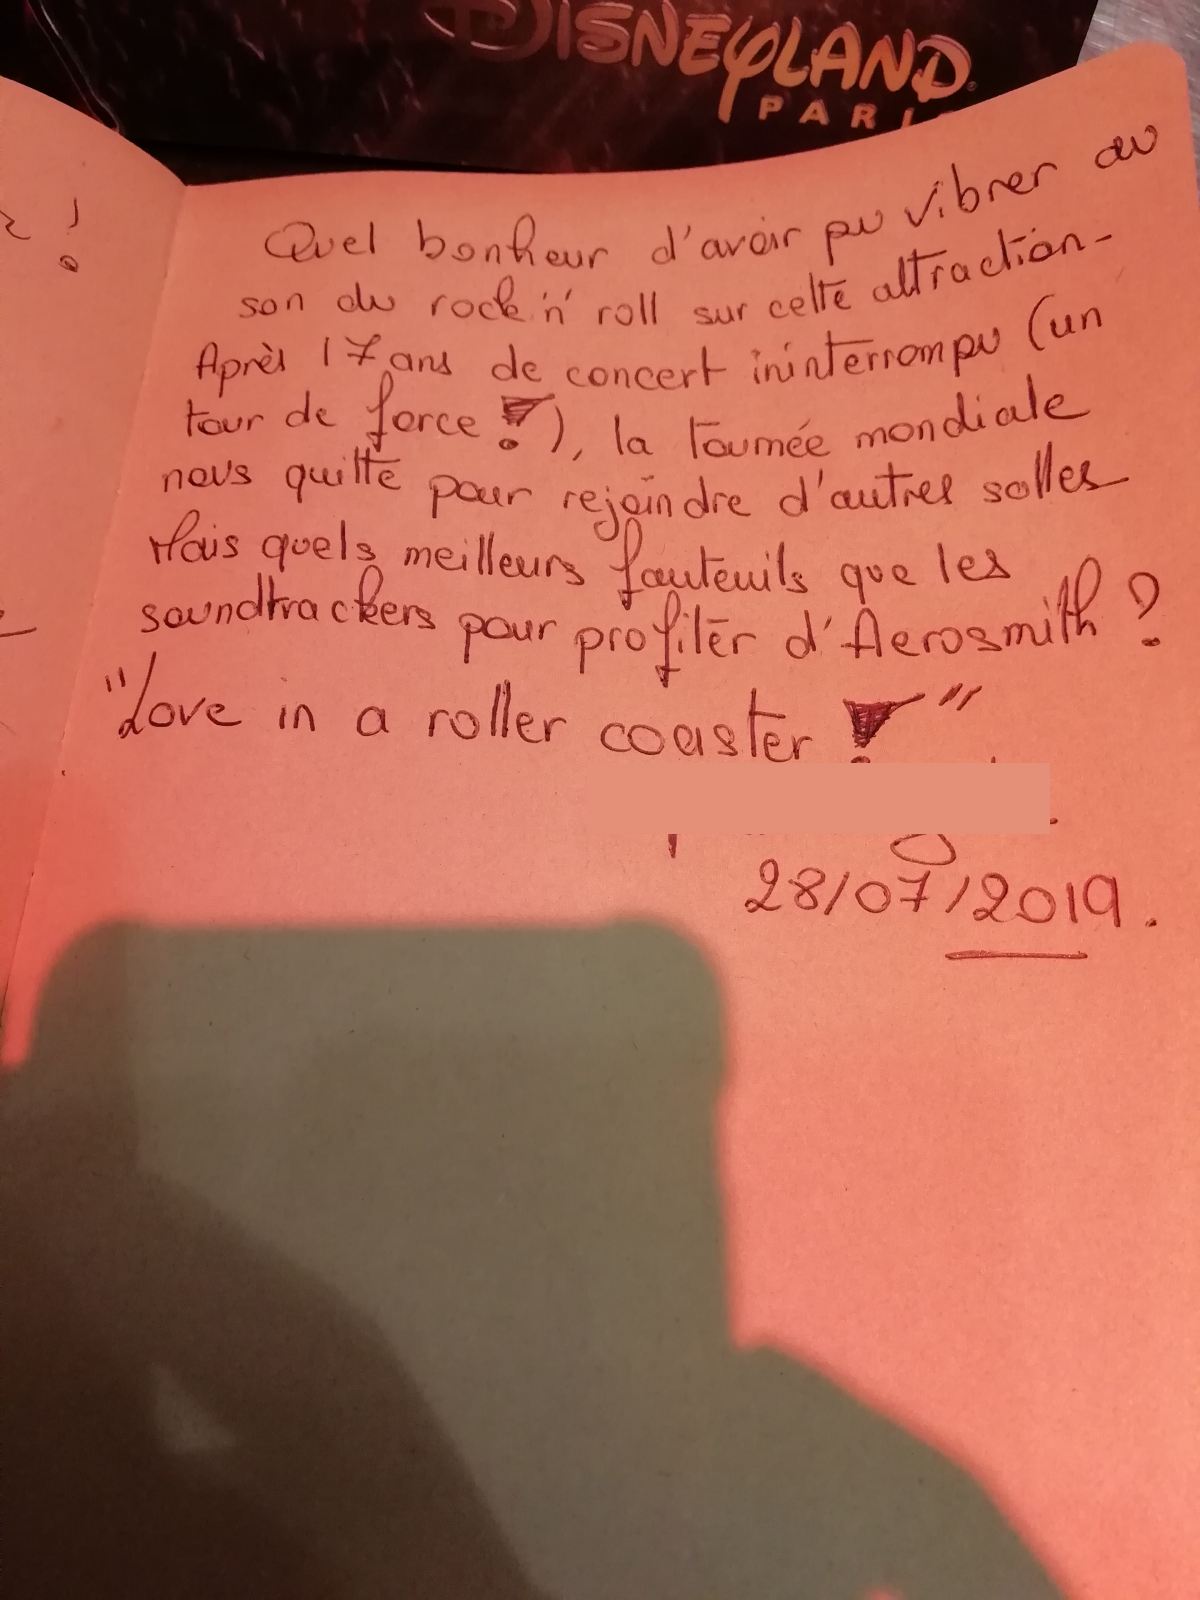 DISNEYLAND
PARI
!
Quel bonheur d'avoir pu vibrer au
son du rock'n' roll sur cette attraction-
Après 17 ans de concert ininterrompu (un
tour de force !), la tournée mondiale
nous quitte pour rejoindre d'autres salles
Mais quels meilleurs fauteuils que les
soundtrackers pour profiter d'Aerosmith ?
"Love in a roller coaster !"
28/07/2019.